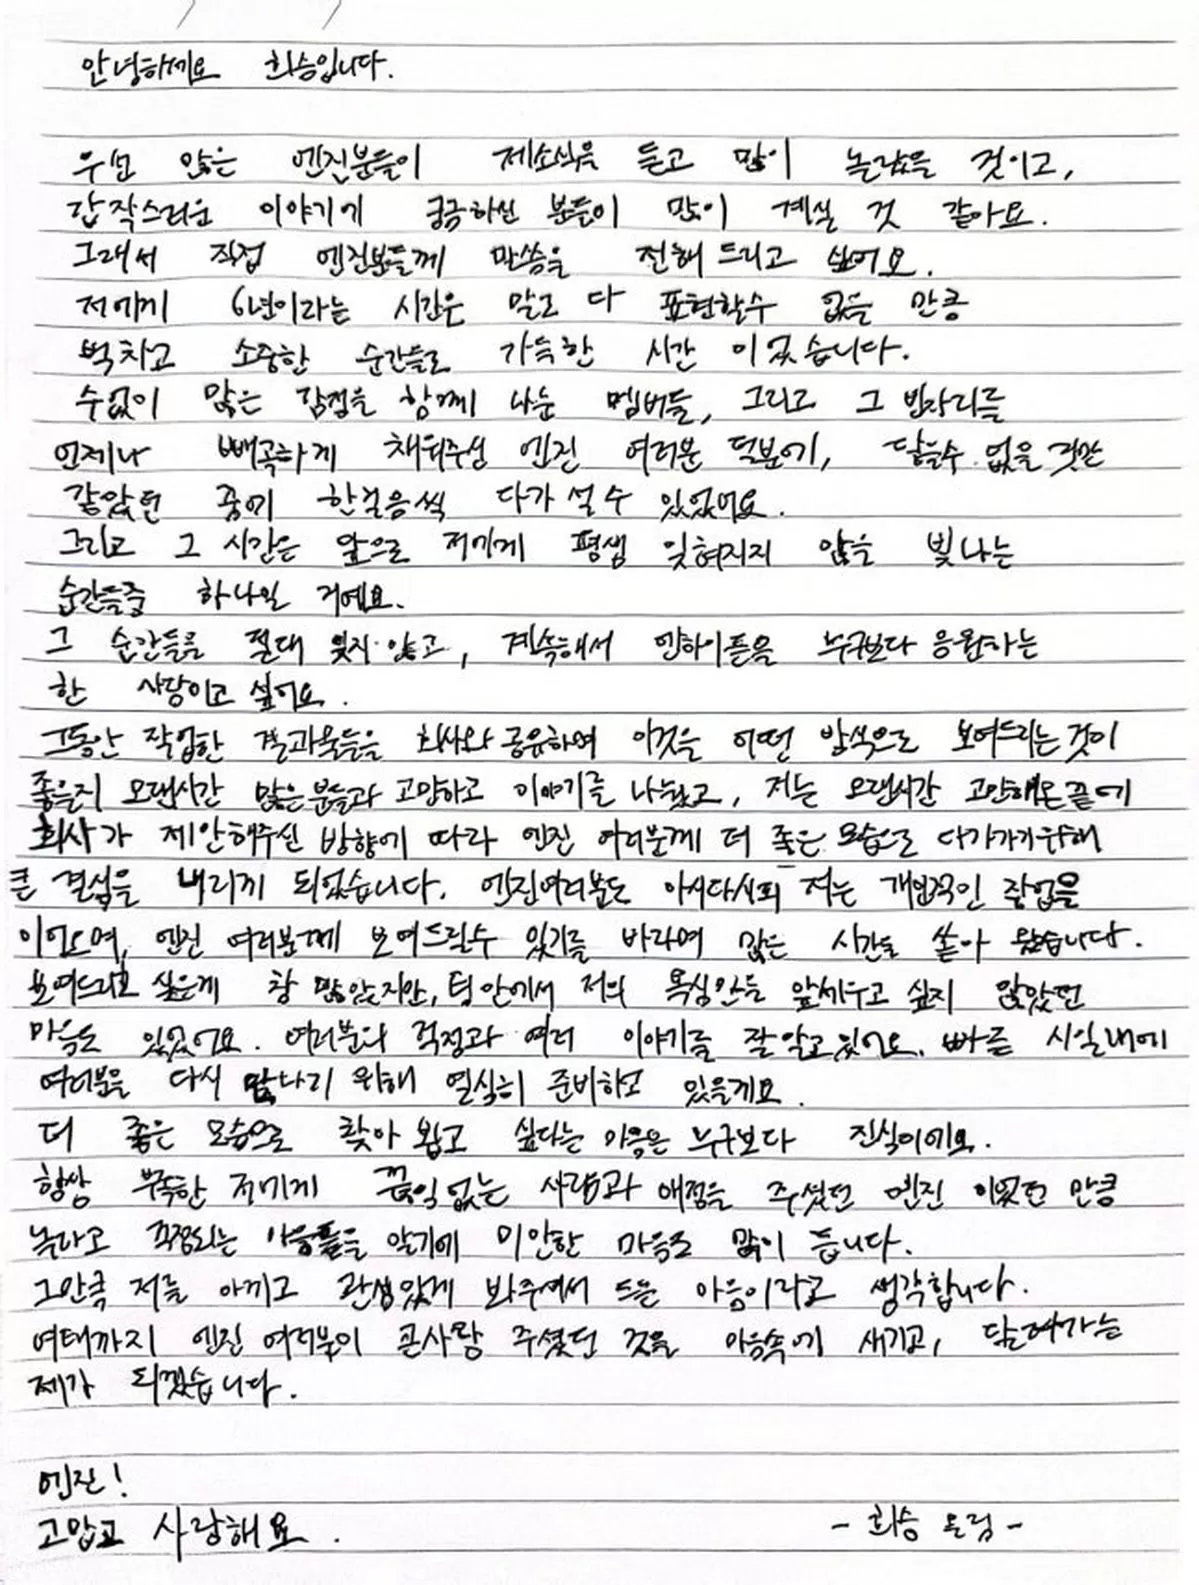 안녕하세요 희승입니다.
우선 많은 엔진분들이 제소식을 듣고 많이 놀랐을 것이고,
갑작스러운 이야기에 궁금하신 분들이 많이 계실 것 같아요.
그래서 직접 엔진분들께 말씀을 전해 드리고 싶어요.
저에게 6년이라는 시간은 말로 다 표현할수 없을 만큼
벅차고 소중한 순간들로 가득한 시간 이었습니다.
수없이 많은 감정을 함께 나눈 멤버들, 그리고 그 빈자리를
언제나 빼곡하게 채워주신 엔진 여러분 덕분에, 닿을수 없을 것만
같았던 꿈에 한걸음씩 다가 설 수 있었어요.
그리고 그 시간은 앞으로 저에게 평생 잊혀지지 않을 빛나는
순간들중 하나일 거예요.
그 순간들을 절대 잊지 않고, 계속해서 엔하이픈을 누구보다 응원하는
한 사람이고 싶어요.
그동안 작업한 결과물들을 회사와 공유하며 이것을 어떤 방식으로 보여드리는 것이
좋을지 오랜시간 많은 분들과 고민하고 이야기를 나눴고, 저는 오랜시간 고민해온 끝에
회사가 제안해주신 방향에 따라 엔진 여러분께 더 좋은 모습으로 다가가기위해
큰 결심을 내리게 되었습니다. 엔진여러분도 아시다시피 저는 개인적인 작업을
이어오며, 엔진 여러분께 보여드릴수 있기를 바라며 많은 시간을 쏟아 왔습니다.
보여드리고 싶은게 참 많았지만, 팀 안에서 저의 욕심만을 앞세우고 싶지 않았던
마음도 있었어요. 여러분의 걱정과 여러 이야기를 잘 알고있어요. 빠른 시일내에
여러분을 다시 만나기 위해 열심히 준비하고 있을게요.
더 좋은 모습으로 찾아 뵙고 싶다는 마음은 누구보다 진심이에요.
항상 부족한 저에게 끊임없는 사랑과 애정을 주셨던 엔진 이었던 만큼
놀라고 걱정되는 마음들을 알기에 미안한 마음도 많이 듭니다.
그만큼 저를 아끼고 관심있게 봐주셔서 드는 마음이라고 생각합니다.
여태까지 엔진 여러분이 큰사랑 주셨던 것을 마음속에 새기고, 달려가는
제가 되겠습니다.
엔진!
고맙고 사랑해요.
- 희승 올림 -